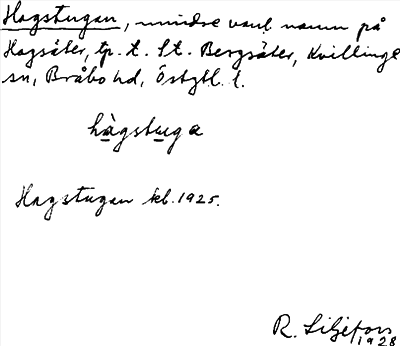 Hagstugan, mindre vanl namn på
Hagsäter, tp. t. St. Bergsäter, Kvillinge
sn, Bråbo hd, Östgtl. l.
hàgstuga
Hagstugan kb. 1925.
R. Liljefors
1928